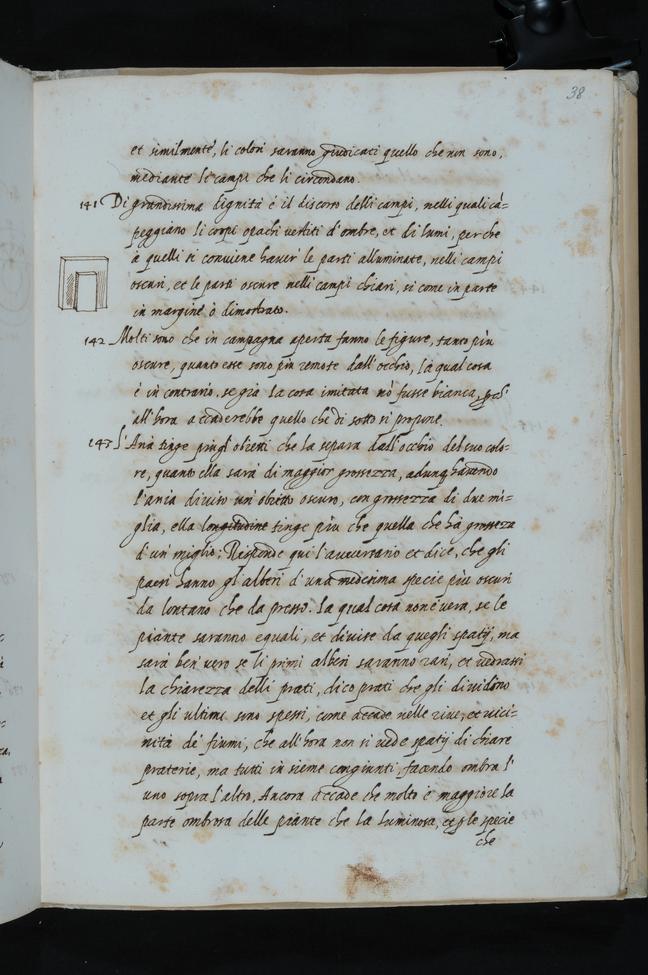 38
et similmente, li colori saranno giudicati quello che non sono,
mediante li campi che li circondano.
141 Di grandissima dignità è il discorso delli campi, nelli quali cā=
peggiano li corpi opachi vestiti d'ombre, et di lumi, perche
à quelli si conviene haver' le parti alluminate, nelli campi
oscuri, et le parti oscure nelli campi chiari, si come in parte
in margine ò dimostrato.
142 Molti sono che in campagna aperta fanno le figure, tanto più
oscure, quanto esse sono più remote dall'occhio, la qual cosa
è in contrario, se già la cosa imitata nō fusse bianca,
all'hora accaderebbe quello che di sotto si propone.
143 L'Aria tinge più gl'obietti che la separa dall'occhio del suo colo=
re, quanto ella sarà di maggior grossezza, adunq havendo
l'aria diviso un' obietto oscuro, con grossezza di due mi=
glia, ella longitudine tinge più che quella che hà grossezza
d'un' miglio; Risponde qui l'avversario et dice, che gli
paesi hanno gl'alberi d'una medesima specie più oscuri
da lontano che da presso. la qual cosa non è vera, se le
piante saranno eguali, et divise da quegli spatij, ma
sarà ben' vero se li primi alberi saranno rari, et vedrassi
la chiarezza delli prati, dico prati che gli dividono
et gli ultimi sono spessi, come accade nelle rive, et vici=
nità de' fiumi, che all'hora non si vede spatij di chiare
praterie, ma tutti in sieme congiunti, facendo ombra l'
uno sopra l'altro. Ancora accade che molto è maggiore la
parte ombrosa delle piante che la luminosa, et le specie
che